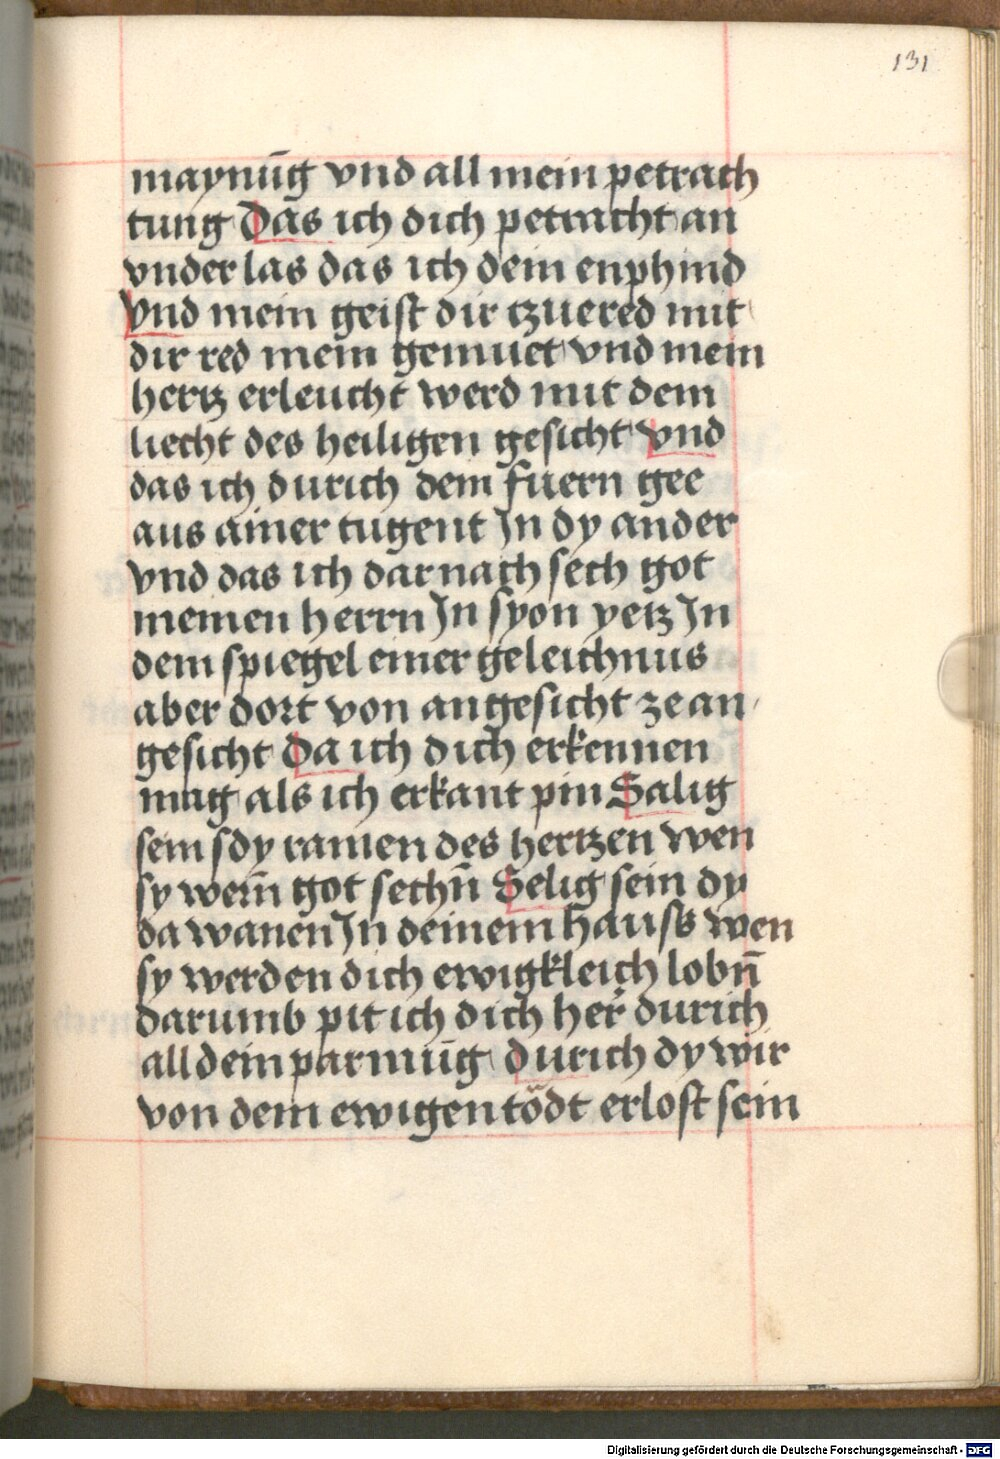 131
maynūg vnd all mein petrach
tung Das ich dich petracht an
vnder las das ich dein enphind
Vnd mein geist dir tzuered mit
dir red mein gemuet vnd mein
hertz erleucht werd mit dem
liecht des heiligen gesicht vnd
das ich durich dein fuern gee
aus ainer tugent In dy ander
vnd das ich darnach sech got
meinen herrn In syon yetz In
dem spiegel einer geleichnus
aber dort von angesicht ze an
gesicht Da ich dich erkennen
mug als ich erkant pin Salig
sein sdy rainen des hertzen wen
sy wern̄ got sechn̄ Selig sein dy
da wanen In deinem hauss wen
sy werden dich ewigkleich lobn̄
darumb pit ich dich her durich
all dein parmūg durich dy wir
von dem ewigen tödt erlost sein
Digitalisierung gefördert durch die Deutsche Forschungsgemeinschaft - DFG